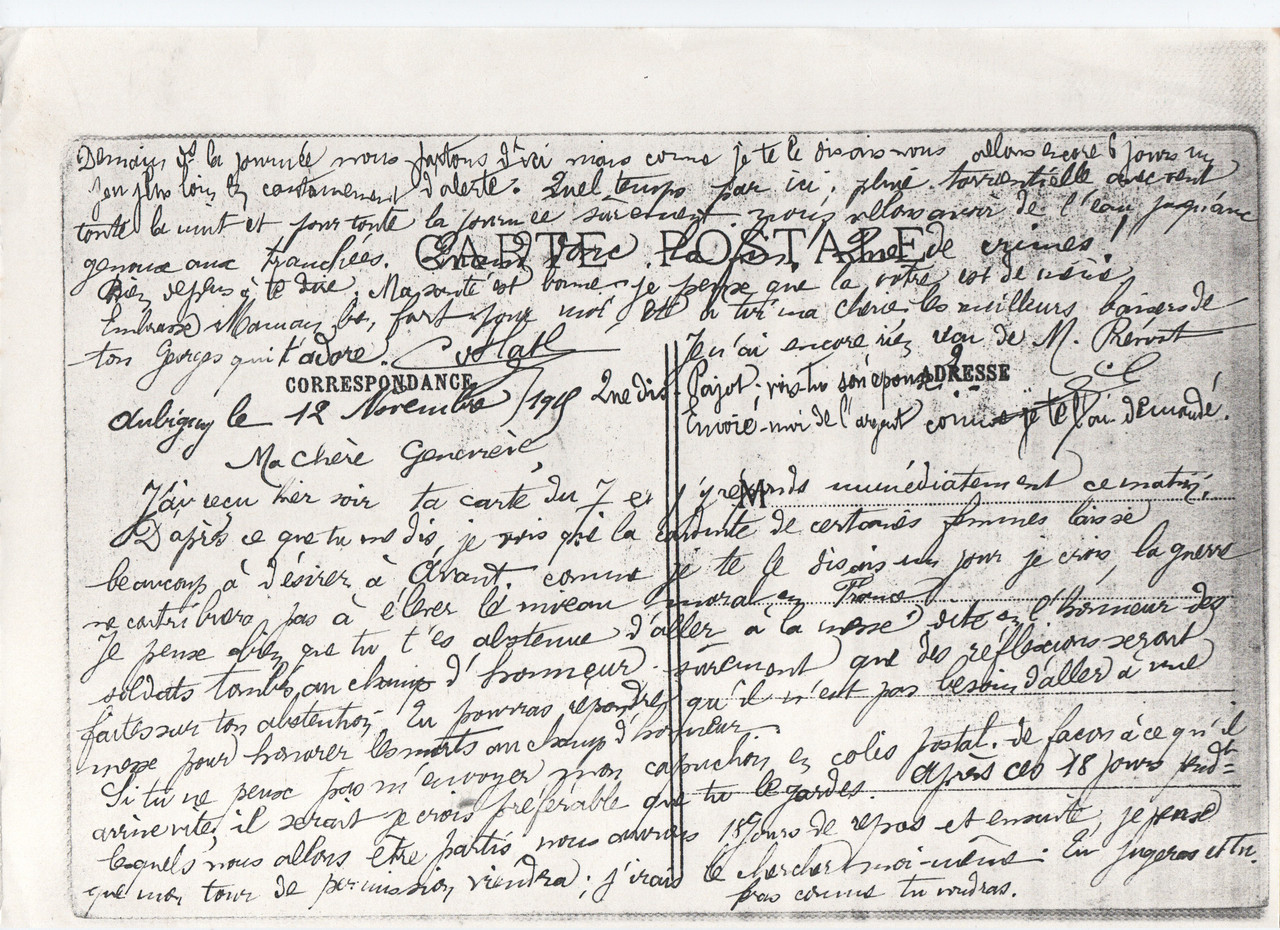 Demain ds la journée nous partons d'ici mais come je te le disais nous allons encore 6 jours un
peu plus loin en cantonnement d'alerte. Quel temps par ici; pluie torrentielle avec vent
toute la nuit et pour toute la journée sûrement nous allons avoir de l'eau jusqu'aux
genoux aux tranchées. donc la fin de crimes!
CARTE POSTALE
Rien de plus à te dire, Ma santé est bonne, je pense que la vôtre est de même
Embrasse Maman bien fort pour moi, et à toi ma chère les meilleurs baisers de
ton Georges qui t'adore.
Je n'ai encore rien reçu de M. Prévost
CORRESPONDANCE
ADRESSE
Pajot; vois-tu son épouse?
Envoie-moi de l'argent comme je te l'ai demandé.
Aubigny le 12 Novembre 1915
Ma chère Geneviève
J'ai reçu hier soir ta carte du 7 et j'y réponds immédiatement ce matin.
M
D'après ce que tu me dis, je vois que la conduite de certaines femmes laisse
beaucoup à désirer à Avant. comme je te le disais un jour je crois, la guerre
ne contribuera pas à élever le niveau moral en France
Je pense bien que tu t'es abstenue d'aller à la messe dite en l'honneur des
soldats tombés au champ d'honneur. sûrement que des réflexions seront
faites sur ton abstention. Tu pourras répondre qu'il n'est pas besoin d'aller à une
messe pour honorer les morts au champ d'honneur.
Si tu ne peux pas m'envoyer mon capuchon en colis postal. de façon à ce qu'il
arrive vite, il serait je crois préférable que tu le gardes. Après ces 18 jours pendt
lesquels nous allons être partis nous aurons 18 jours de repos et ensuite, je pense
que mon tour de permission viendra; j'irais le chercher moi-même. Tu jugeras et tu
feras comme tu voudras.